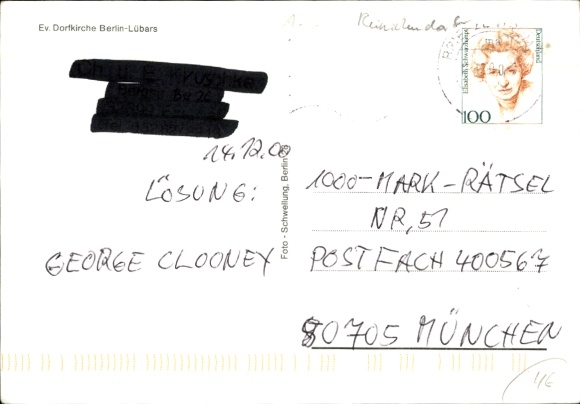 Ev. Dorfkirche Berlin-Lübars
Elisabeth Schwarzhaupt
Deutschland
100
14.12.00
LÖSUNG:
GEORGE CLOONEY
Foto - Schwellung, Berlin
1000-MARK-RÄTSEL
NR, 51
POSTFACH 400567
80705 MÜNCHEN
4€